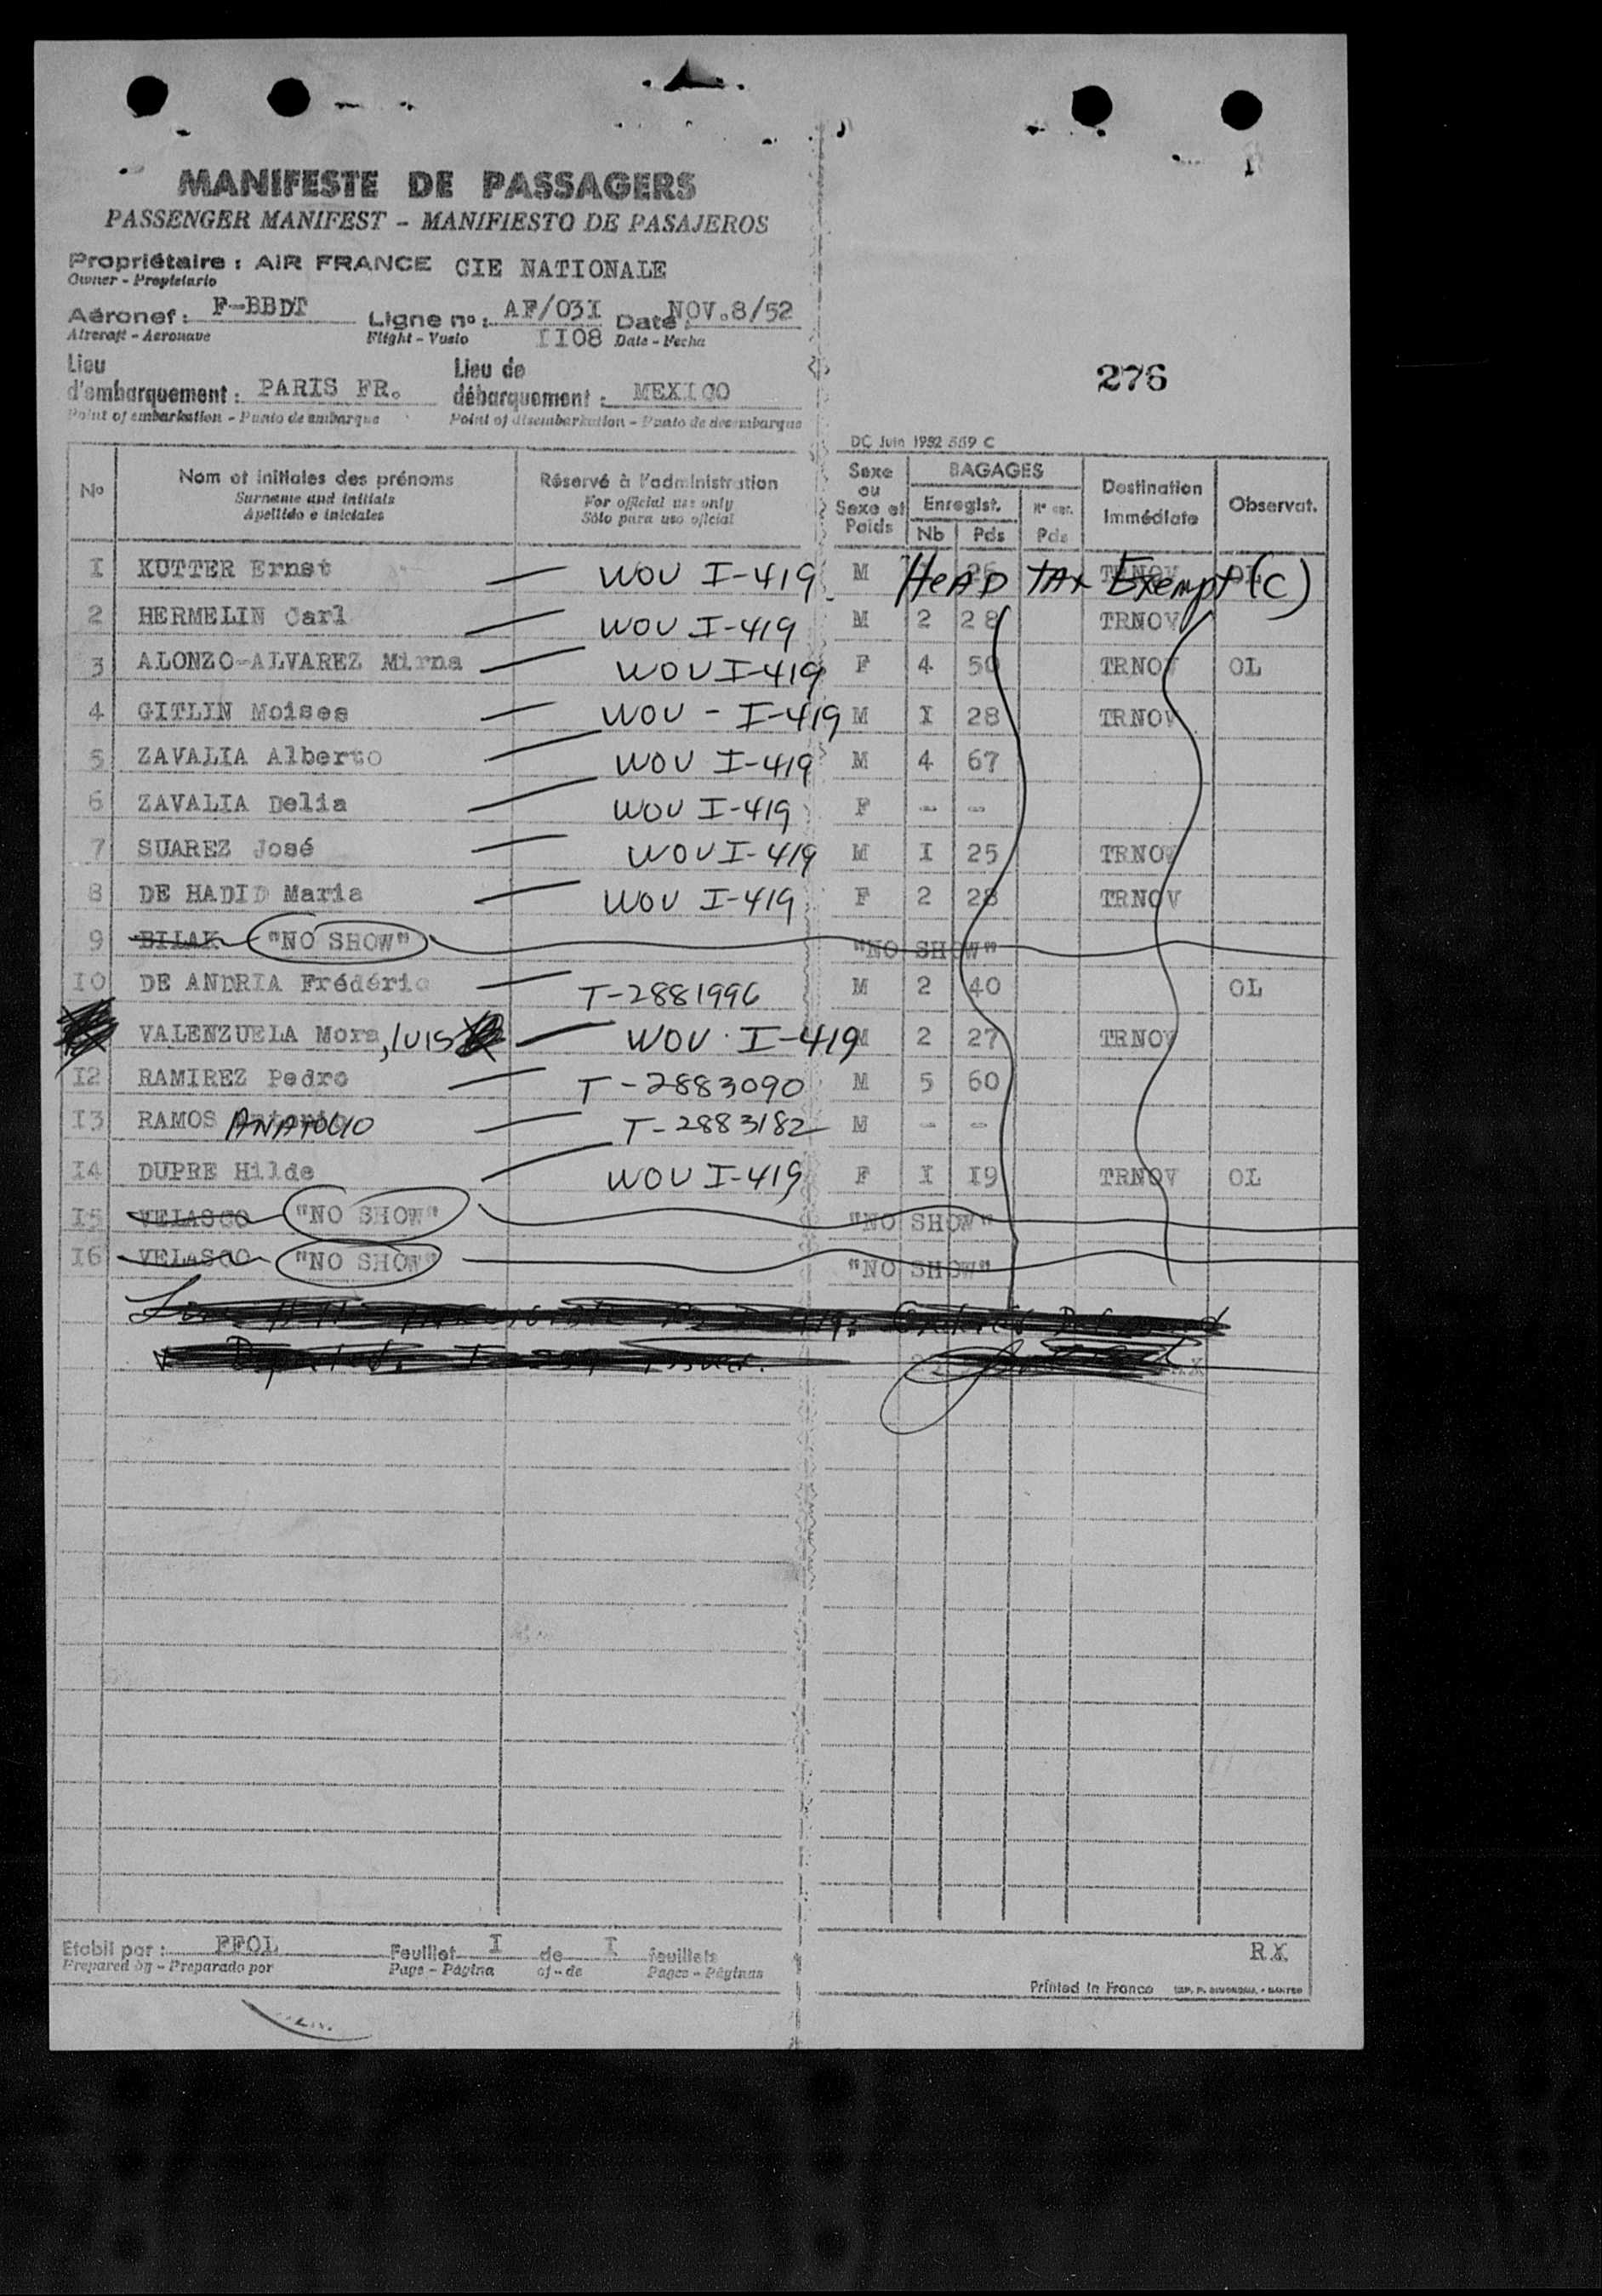 MANIFESTE DE PASSAGERS
PASSENGER MANIFEST - MANIFIESTO DE PASAJEROS
Propriétaire : AIR FRANCE CIE NATIONALE
Owner - Propietario
Aéronef : F-BBDT Ligne no : AF/03I Date : NOV.8/52
Aircraft - Aeronave Flight - Vuelo II08 Date - Fecha
276
Lieu d'embarquement : PARIS FR. Lieu de débarquement : MEXICO
Point of embarkation - Punto de embarque Point of disembarkation - Punto de desembarque
DC Juin 1952 559 C
No Nom et initiales des prénoms Réservé à l'administration Sexe ou Sexe et Poids BAGAGES Destination Immédiate Observat.
Surname and initials For official use only Enregist.
Apellido e iniciales Sólo para uso oficial Nb Pds Pds
I KUTTER Ernst — WOU I-419 M HEAD TAX Exempt (C)
2 HERMELIN Carl — WOU I-419 M 2 28 TRNOV
3 ALONZO-ALVAREZ Mirna — WOU I-419 F 4 50 TRNOV OL
4 GITLIN Moises — WOU - I-419 M I 28 TRNOV
5 ZAVALIA Alberto — WOU I-419 M 4 67
6 ZAVALIA Delia — WOU I-419 F - -
7 SUAREZ José — WOU I-419 M I 25 TRNOV
8 DE HADID Maria — WOU I-419 F 2 28 TRNOV
9 BILAK "NO SHOW" "NO SHOW"
I0 DE ANDRIA Frédéric — T-2881996 M 2 40 OL
VALENZUELA Mora, LUIS — WOU I-419 M 2 27 TRNOV
I2 RAMIREZ Pedro — T-2883090 M 5 60
I3 RAMOS ANATOLIO — T-2883182 M - -
I4 DUPRE Hilde — WOU I-419 F I I9 TRNOV OL
I5 VELASCO "NO SHOW" "NO SHOW"
I6 VELASCO "NO SHOW" "NO SHOW"
Etabli par : FFOL Feuillet I de I feuillets RX
Prepared by - Preparado por Page - Página of - de Pages - Páginas
Printed in France